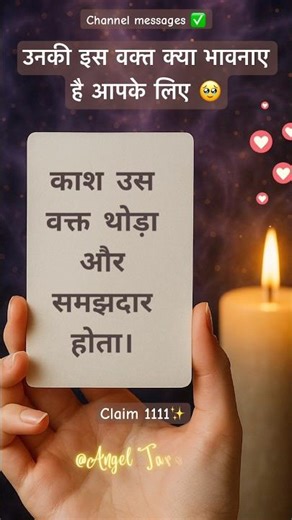 Channel messages ✅
उनकी इस वक्त क्या भावनाए
है आपके लिए 🥹
काश उस
वक्त थोड़ा
और
समझदार
होता।
Claim 1111✨
@Angel Taro